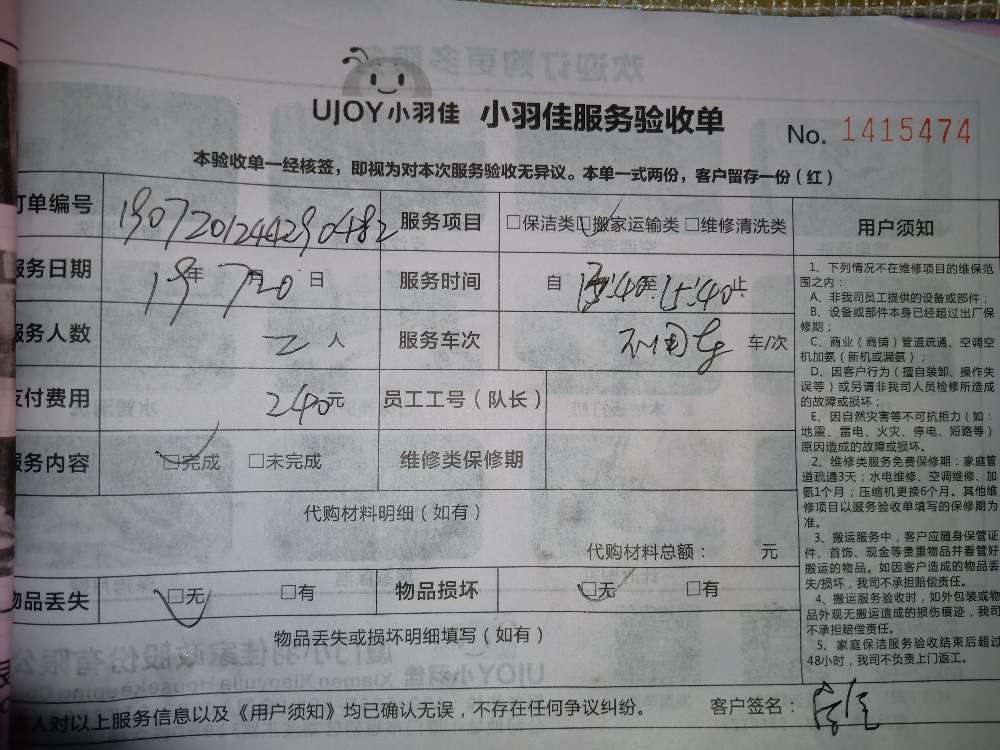 欢迎订购更多服务
UJOY小羽佳 小羽佳服务验收单
No. 1415474
本验收单一经核签，即视为对本次服务验收无异议。本单一式两份，客户留存一份（红）
订单编号 1907201244290482 服务项目 □保洁类 □搬家运输类 □维修清洗类
服务日期 19年 7月20日 服务时间 自 13:40 至 15:40 止
服务人数 2人 服务车次 不用车 车/次
支付费用 240元 员工工号（队长）
服务内容 □完成 □未完成 维修类保修期
代购材料明细（如有）
代购材料总额： 元
物品丢失 □无 □有 物品损坏 □无 □有
物品丢失或损坏明细填写（如有）
本人对以上服务信息以及《用户须知》均已确认无误，不存在任何争议纠纷。 客户签名：
用户须知
1、下列情况不在维修项目的维保范
围之内：
A、非我司员工提供的设备或部件；
B、设备或部件本身已经超过出厂保
修期；
C、商业（商铺）管道疏通、空调空
机加氨（新机或漏氨）；
D、因客户行为（擅自装卸、操作失
误等）或另请非我司人员检修所造成
的故障或损坏；
E、因自然灾害等不可抗拒力（如：
地震、雷电、火灾、停电、短路等）
原因造成的故障或损坏。
2、维修类服务免费保修期：家庭管
道疏通3天；水电维修、空调维修、加
氨1个月；压缩机更换6个月。其他维
修项目以服务验收单填写的保修期为
准。
3、搬运服务中，客户应随身保管证
件、首饰、现金等贵重物品并看管好
搬运的物品。如因客户造成的物品丢
失/损坏，我司不承担赔偿责任。
4、搬运服务验收时，如外包装或物
品外观无搬运造成的损伤痕迹，我司
不承担赔偿责任。
5、家庭保洁服务验收结束后超过
48小时，我司不负责上门返工。